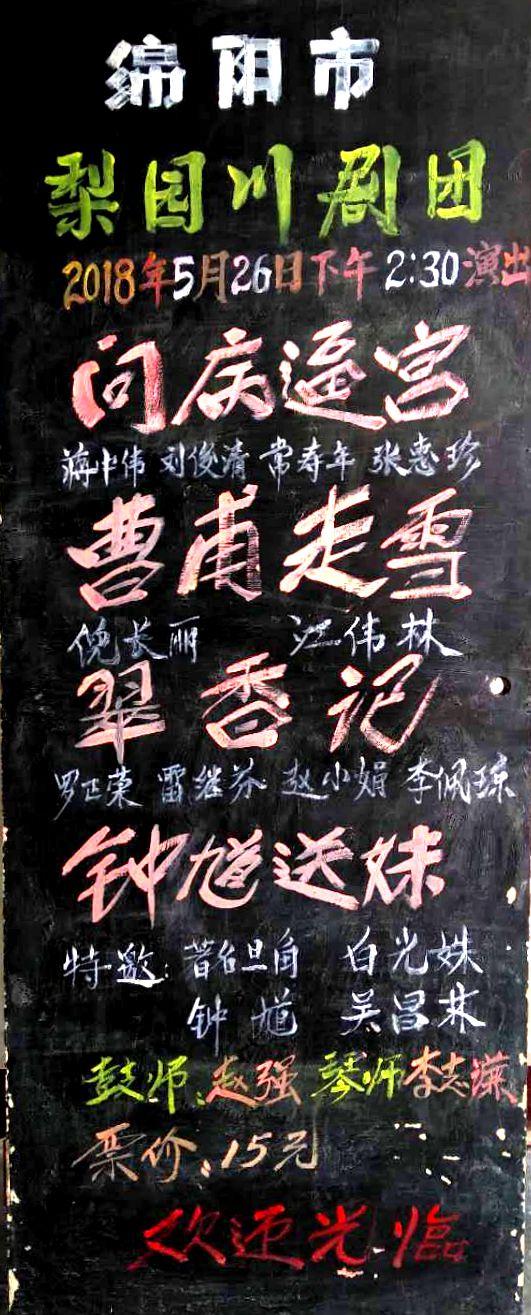 绵阳市
梨园川剧团
2018年5月26日下午2:30演出
问庆逼宫
蒋卡伟 刘俊清 常寿年 张惠珍
曹甫走雪
倪长丽 江伟林
翠香记
罗正荣 雷继芬 赵小娟 李佩琼
钟馗送妹
特邀:著名旦角 白光姝
钟馗 吴昌林
鼓师:赵强 琴师李志
票价:15元
欢迎光临